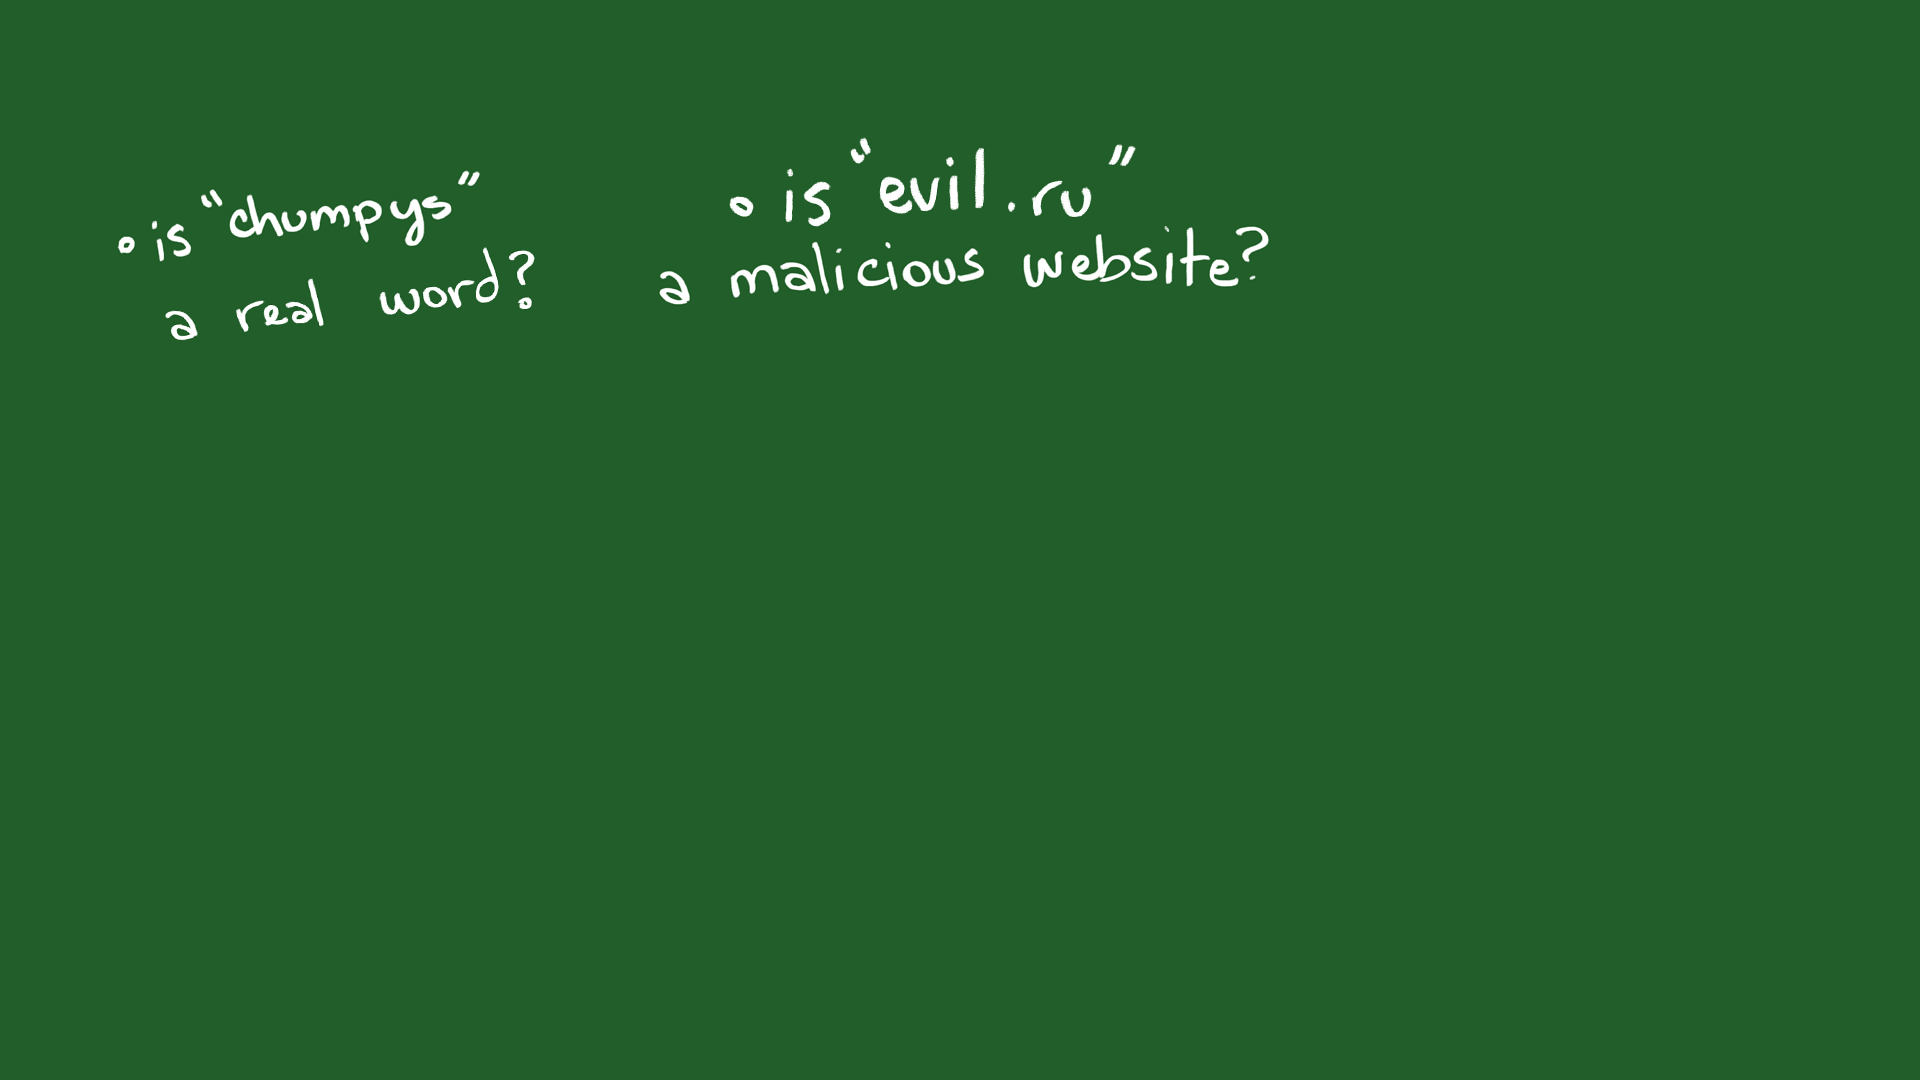 • is "chumpys"
a real word?
• is "evil.ru"
a malicious website?